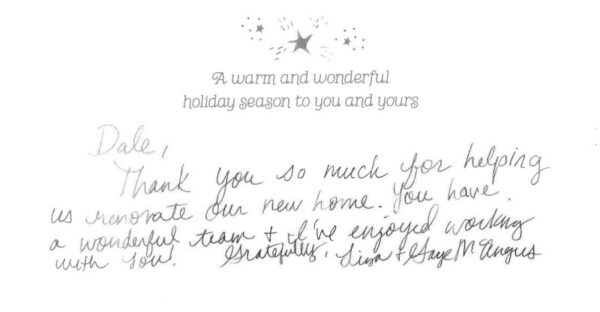 A warm and wonderful
holiday season to you and yours
Dale,
Thank you so much for helping
us renovate our new home. You have
a wonderful team + I've enjoyed working
with you! Gratefully, Lisa + Gaye McAngus